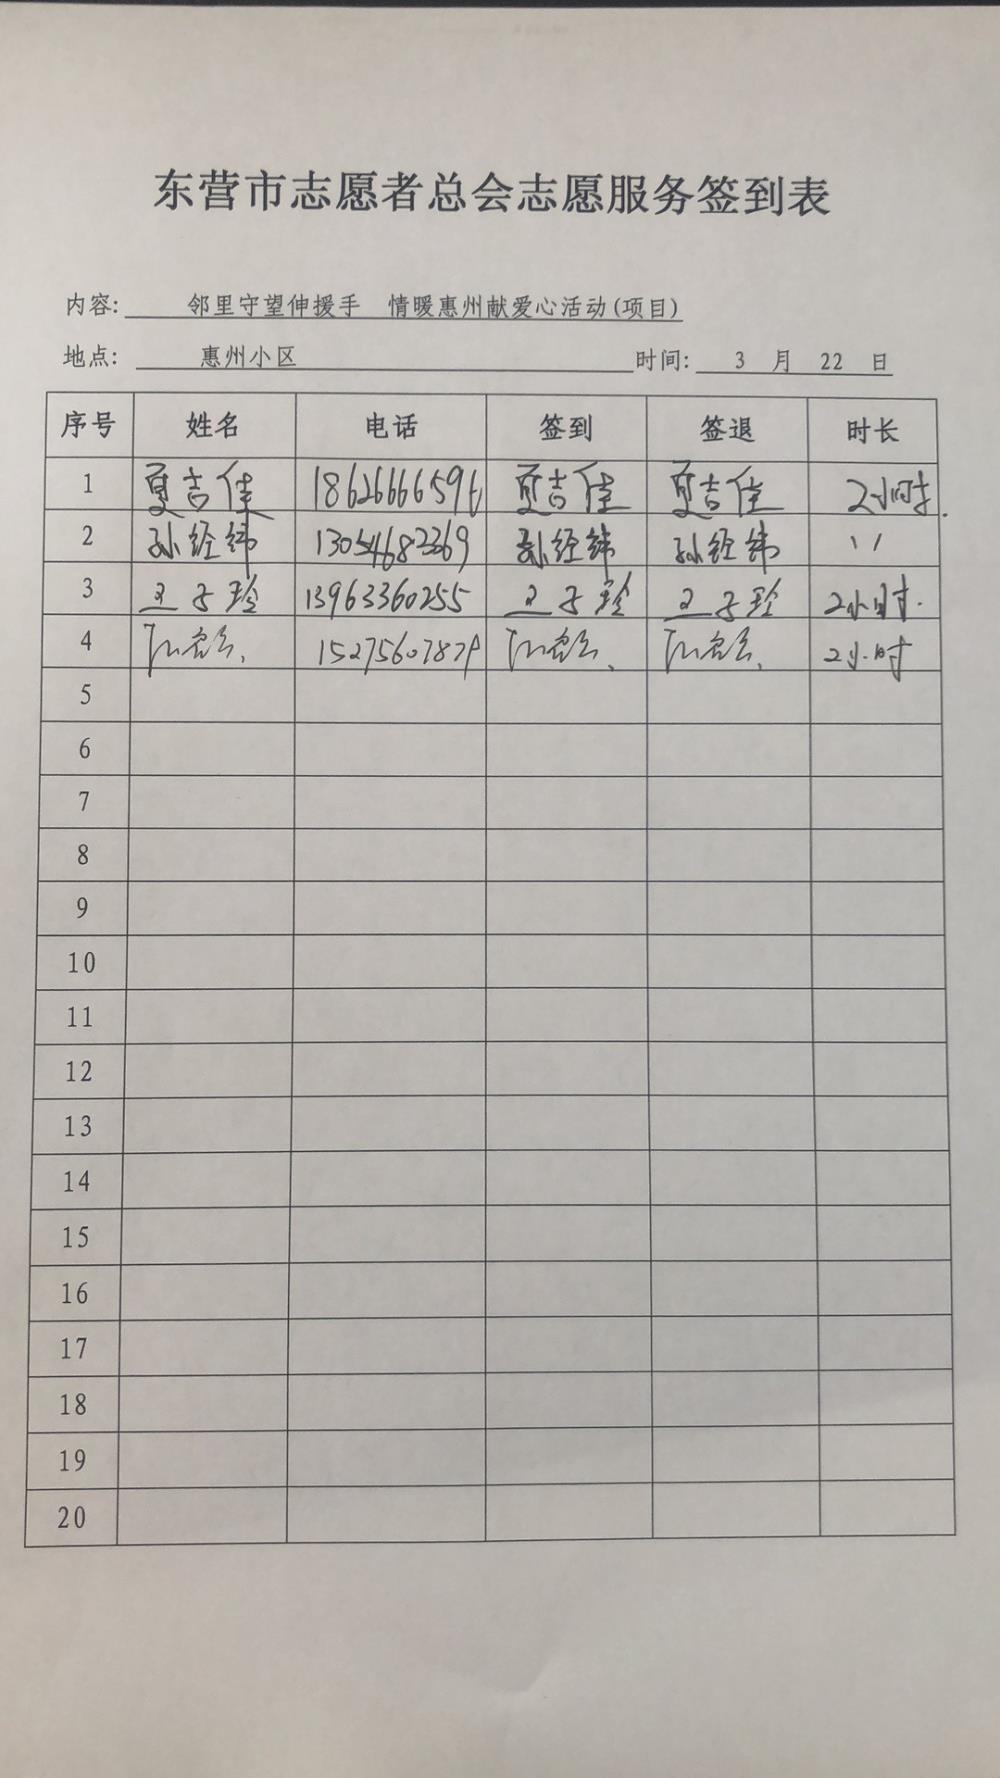 东营市志愿者总会志愿服务签到表
内容: 邻里守望伸援手 情暖惠州献爱心活动(项目)
地点: 惠州小区 时间: 3 月 22 日
序号 姓名 电话 签到 签退 时长
1 夏吉佳 18626666596 夏吉佳 夏吉佳 2小时.
2 孙经纬 13054682369 孙经纬 孙经纬 〃
3 王子玲 13963360255 王子玲 王子玲 2小时.
4 2小时
5
6
7
8
9
10
11
12
13
14
15
16
17
18
19
20